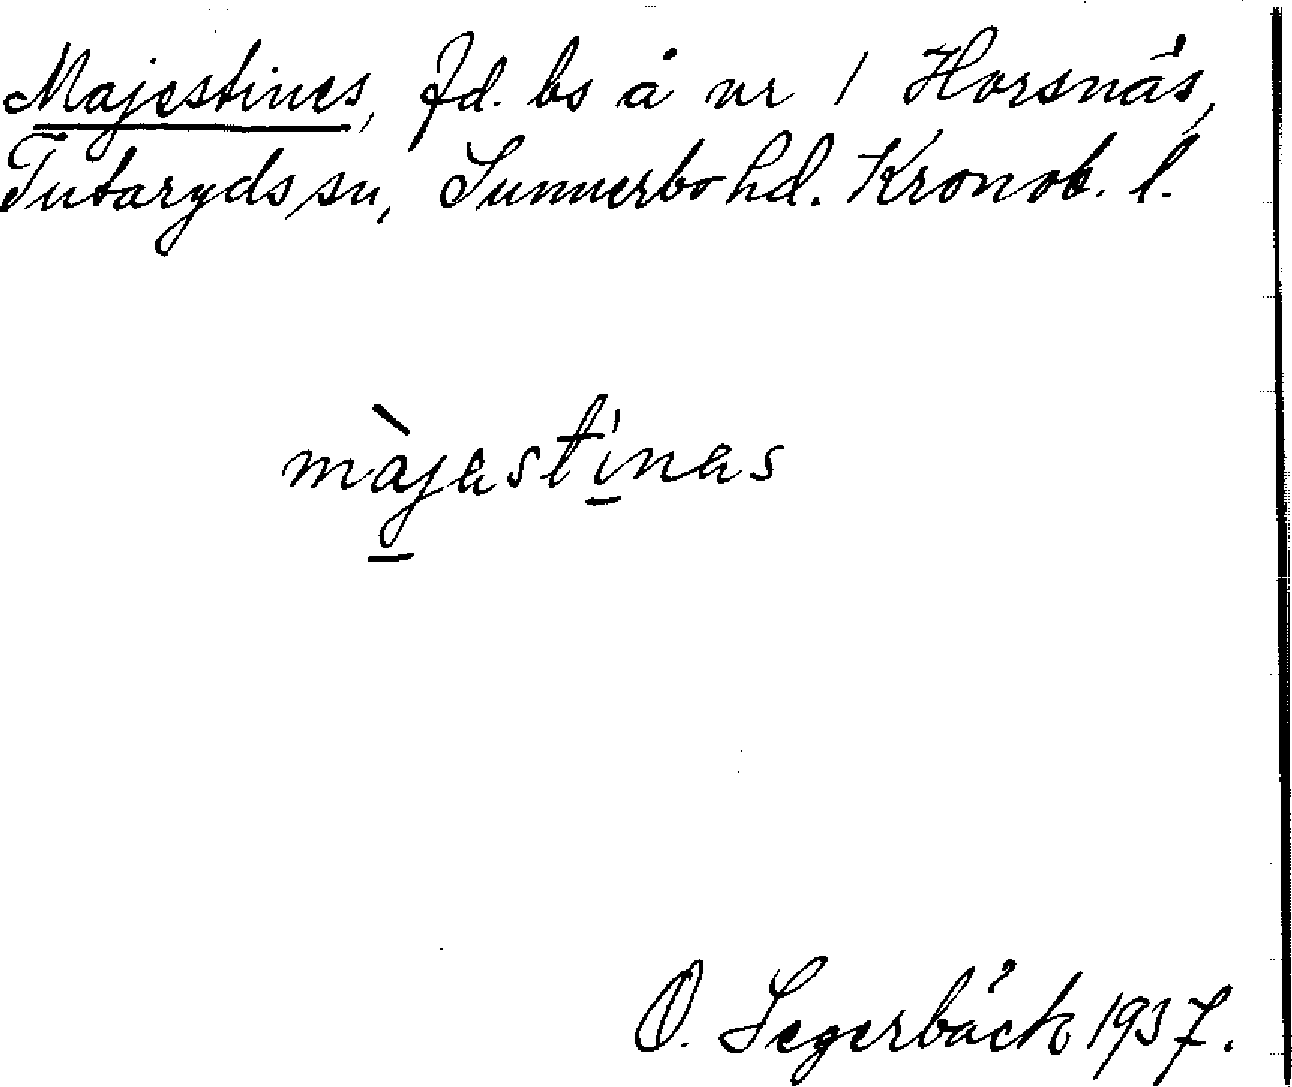 Majestines, fd. bs å nr 1 Horsnäs,
Tutaryds sn, Sunnerbo hd. Kronob. l.
màjastinas
O. Segerbäck 1937.